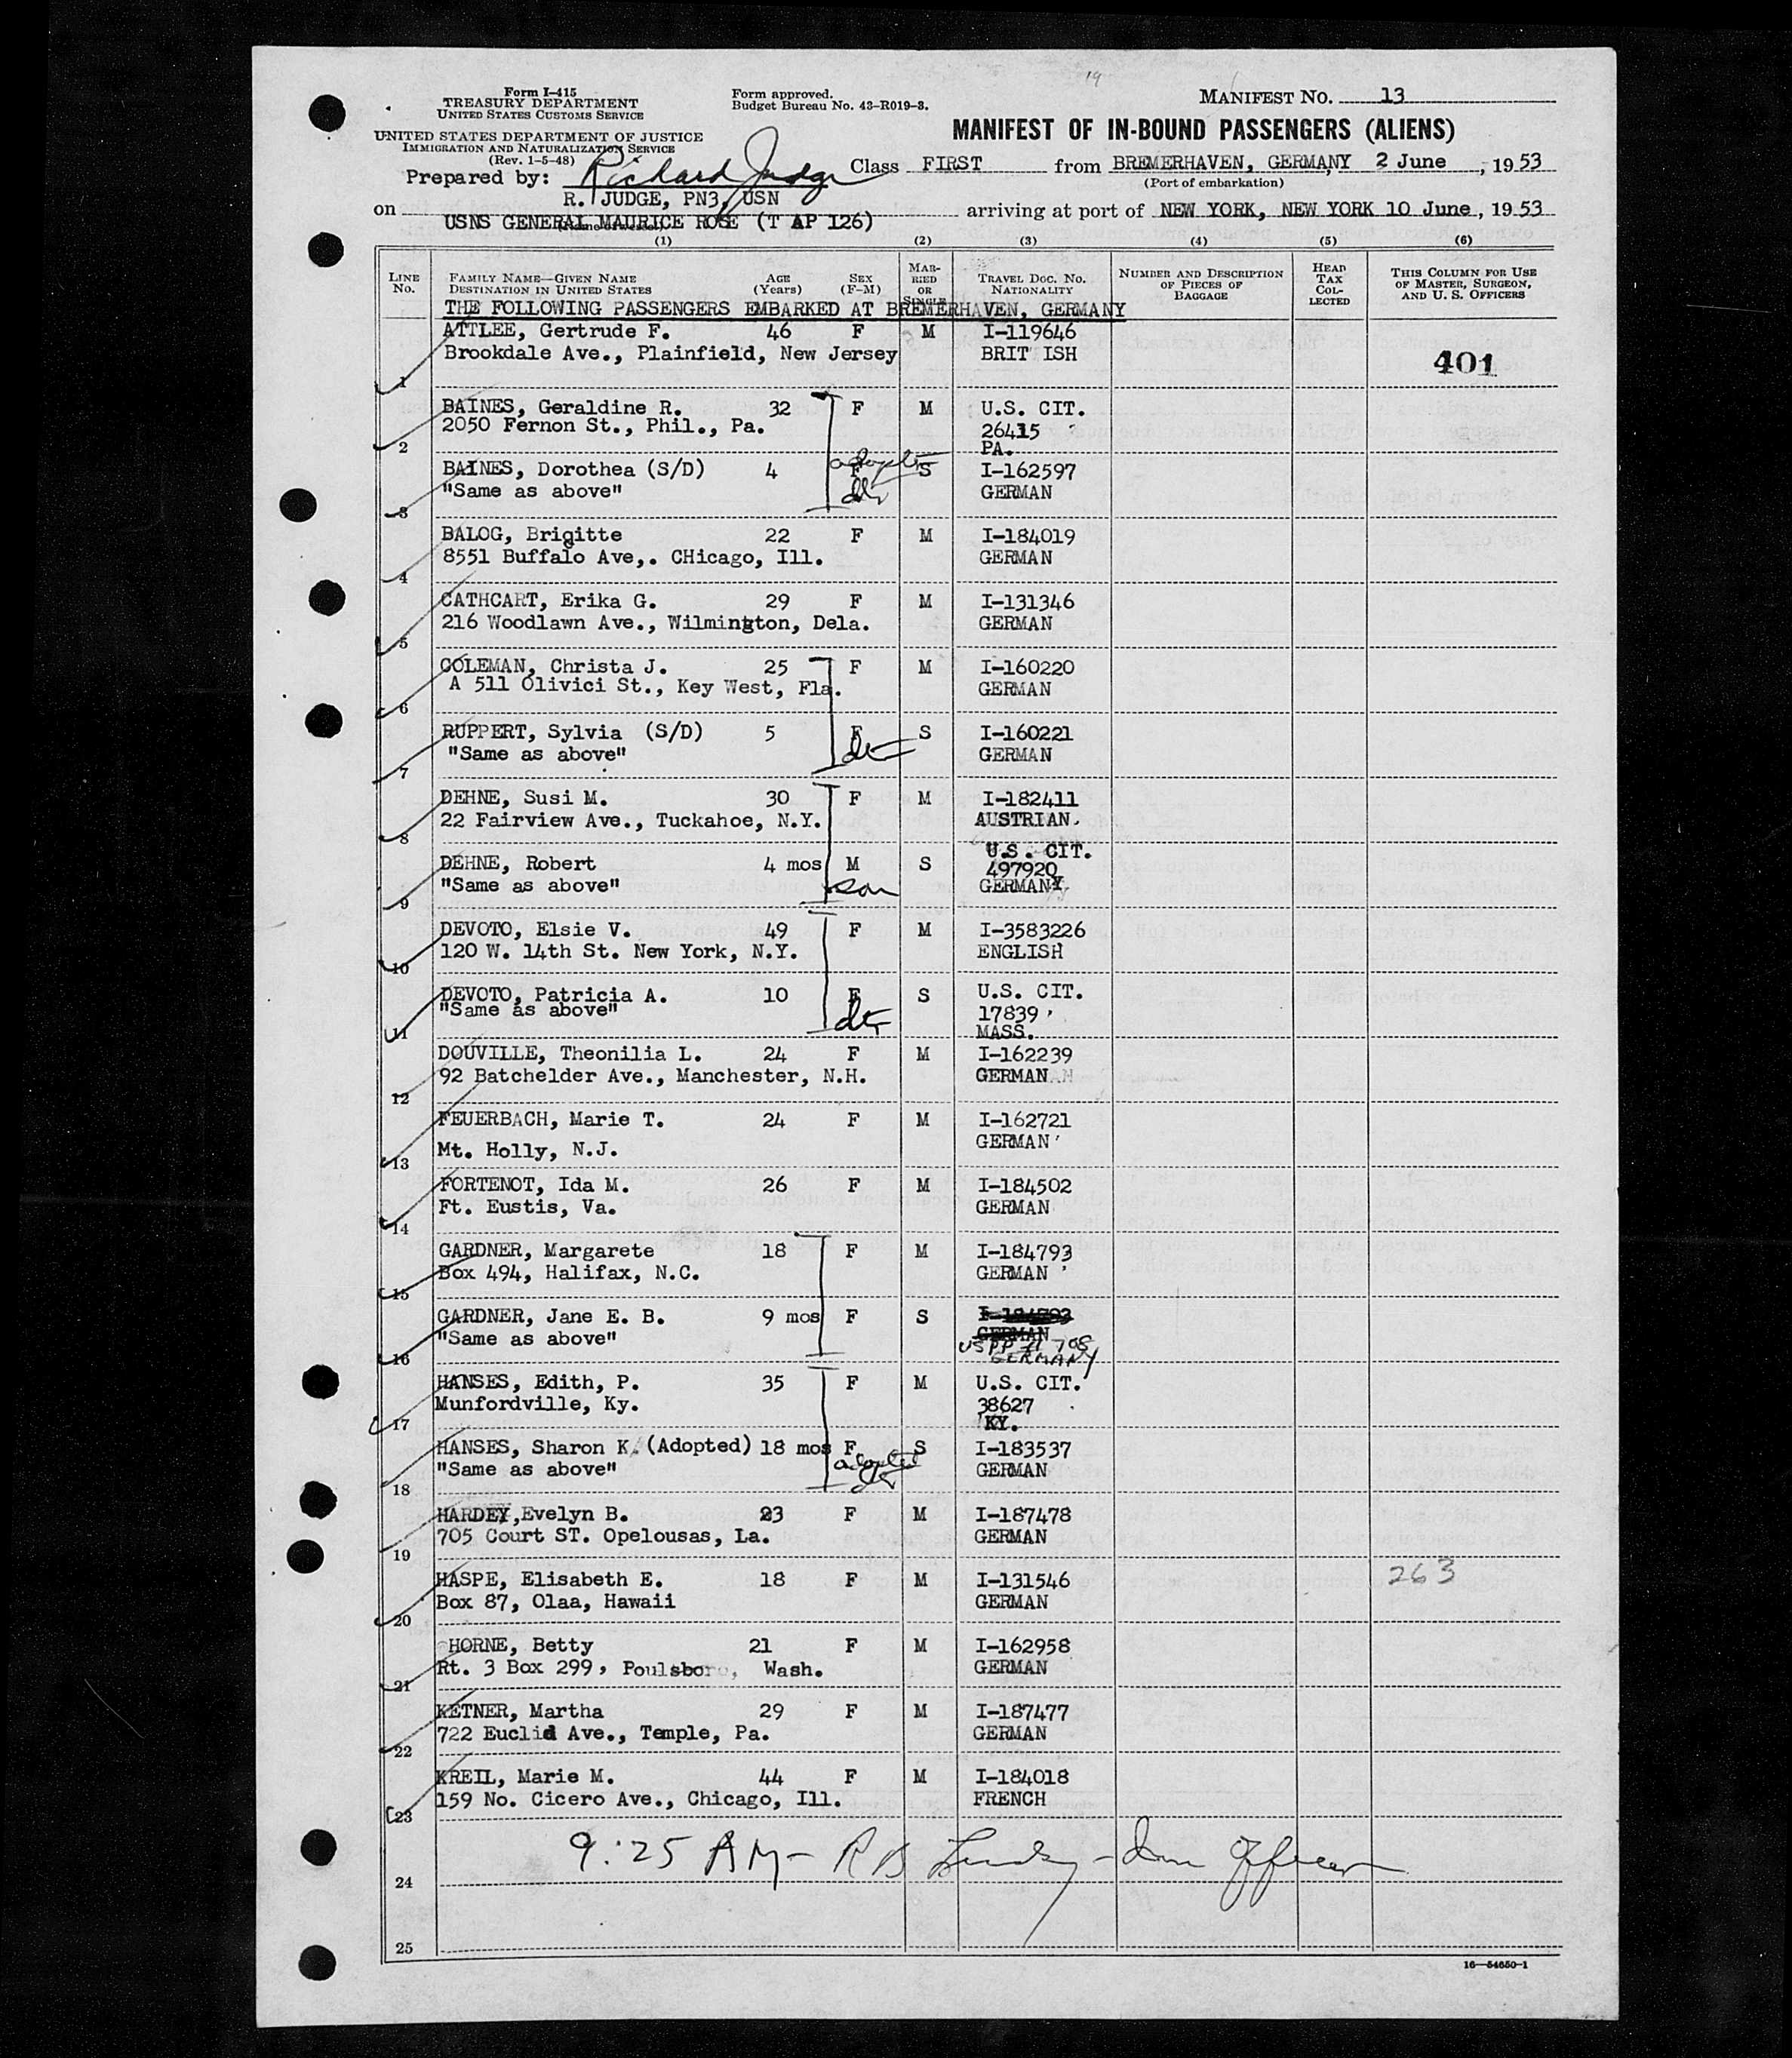 19
Form I-415
TREASURY DEPARTMENT
UNITED STATES CUSTOMS SERVICE
Form approved.
Budget Bureau No. 43-R019-3.
MANIFEST NO. 13
UNITED STATES DEPARTMENT OF JUSTICE
IMMIGRATION AND NATURALIZATION SERVICE
(Rev. 1-5-48)
MANIFEST OF IN-BOUND PASSENGERS (ALIENS)
Prepared by: Richard Judge Class FIRST from BREMERHAVEN, GERMANY 2 June, 1953
(Port of embarkation)
R. JUDGE, PN3, USN
on USNS GENERAL MAURICE ROSE (T AP 126) arriving at port of NEW YORK, NEW YORK 10 June, 1953
(Name of vessel)
(1) (2) (3) (4) (5) (6)
LINE NO. FAMILY NAME—GIVEN NAME DESTINATION IN UNITED STATES AGE (Years) SEX (F-M) MARRIED OR SINGLE TRAVEL DOC. NO. NATIONALITY NUMBER AND DESCRIPTION OF PIECES OF BAGGAGE HEAD TAX COLLECTED THIS COLUMN FOR USE OF MASTER, SURGEON, AND U. S. OFFICERS
THE FOLLOWING PASSENGERS EMBARKED AT BREMERHAVEN, GERMANY
ATTLEE, Gertrude F. 46 F M I-119646
Brookdale Ave., Plainfield, New Jersey BRIT ISH 401
1
BAINES, Geraldine R. 32 F M U.S. CIT.
2050 Fernon St., Phil., Pa. 26415
2 PA.
BAINES, Dorothea (S/D) 4 F S I-162597
adopted
"Same as above" dtr GERMAN
3
BALOG, Brigitte 22 F M I-184019
8551 Buffalo Ave,. CHicago, Ill. GERMAN
4
CATHCART, Erika G. 29 F M I-131346
216 Woodlawn Ave., Wilmington, Dela. GERMAN
5
COLEMAN, Christa J. 25 F M I-160220
A 511 Olivici St., Key West, Fla. GERMAN
6
RUPPERT, Sylvia (S/D) 5 F S I-160221
"Same as above" dtr GERMAN
7
DEHNE, Susi M. 30 F M I-182411
22 Fairview Ave., Tuckahoe, N.Y. AUSTRIAN.
8
U.S. CIT.
DEHNE, Robert 4 mos M S 497920
"Same as above" son GERMANY
9
DEVOTO, Elsie V. 49 F M I-3583226
120 W. 14th St. New York, N.Y. ENGLISH
10
DEVOTO, Patricia A. 10 F S U.S. CIT.
"Same as above" dtr 17839
11 MASS.
DOUVILLE, Theonilia L. 24 F M I-162239
92 Batchelder Ave., Manchester, N.H. GERMAN
12
FEUERBACH, Marie T. 24 F M I-162721
Mt. Holly, N.J. GERMAN
13
FORTENOT, Ida M. 26 F M I-184502
Ft. Eustis, Va. GERMAN
14
GARDNER, Margarete 18 F M I-184793
Box 494, Halifax, N.C. GERMAN
15
GARDNER, Jane E. B. 9 mos F S I-184793
"Same as above" GERMAN
USPP # 708
16 GERMANY
HANSES, Edith, P. 35 F M U.S. CIT.
Munfordville, Ky. 38627
17 KY.
HANSES, Sharon K. (Adopted) 18 mos F S I-183537
adopted
"Same as above" dtr GERMAN
18
HARDEY,Evelyn B. 23 F M I-187478
705 Court ST. Opelousas, La. GERMAN
19
HASPE, Elisabeth E. 18 F M I-131546 263
Box 87, Olaa, Hawaii GERMAN
20
HORNE, Betty 21 F M I-162958
Rt. 3 Box 299, Poulsboro, Wash. GERMAN
21
KETNER, Martha 29 F M I-187477
722 Euclid Ave., Temple, Pa. GERMAN
22
KREIL, Marie M. 44 F M I-184018
159 No. Cicero Ave., Chicago, Ill. FRENCH
23
9:25 AM - R B - Imm Officer
24
25
16—54650-1